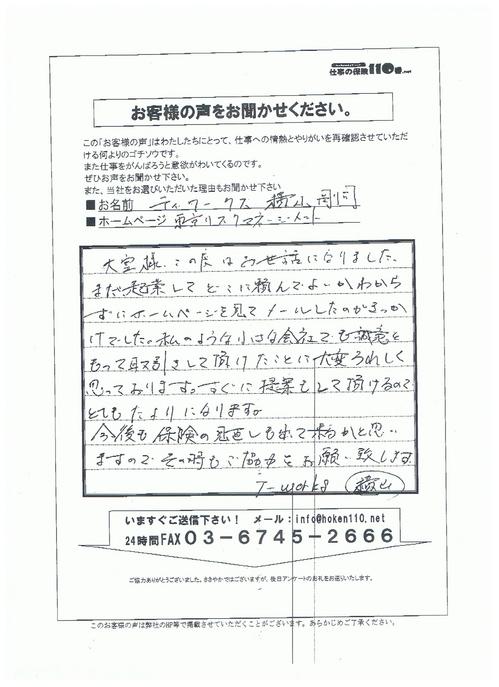 仕事の保険110番.net
お客様の声をお聞かせください。
この「お客様の声」はわたしたちにとって、仕事への情熱とやりがいを再確認させていただ
ける何よりのゴチソウです。
また仕事をがんばろうと意欲がわいてくるのです。
ぜひお声をお聞かせ下さい。
また、当社をお選びいただいた理由もお聞かせ下さい
■お名前 ティワークス 横山 剛司
■ホームページ 東京リスクマネージメント
大室様、この度はお世話になりました。
まだ起業してどこに頼んでよいかわから
ずにホームページを見てメールしたのがきっか
けでした。私のような小さな会社でも誠意を
もって取引きして頂けたことに大変うれしく
思っております。すぐに提案もして頂けるので
とてもたよりになります。
今後も保険の見直しも出て来るかと思い
ますので その時もご協力をお願い致します
T-works 横山
いますぐご送信下さい！ メール：info@hoken110.net
24時間FAX 03-6745-2666
ご協力ありがとうございました。ささやかではございますが、後日アンケートのお礼をお送りいたします。
このお客様の声は弊社のHP等で掲載させていただくことがございます。あらかじめご了承ください。